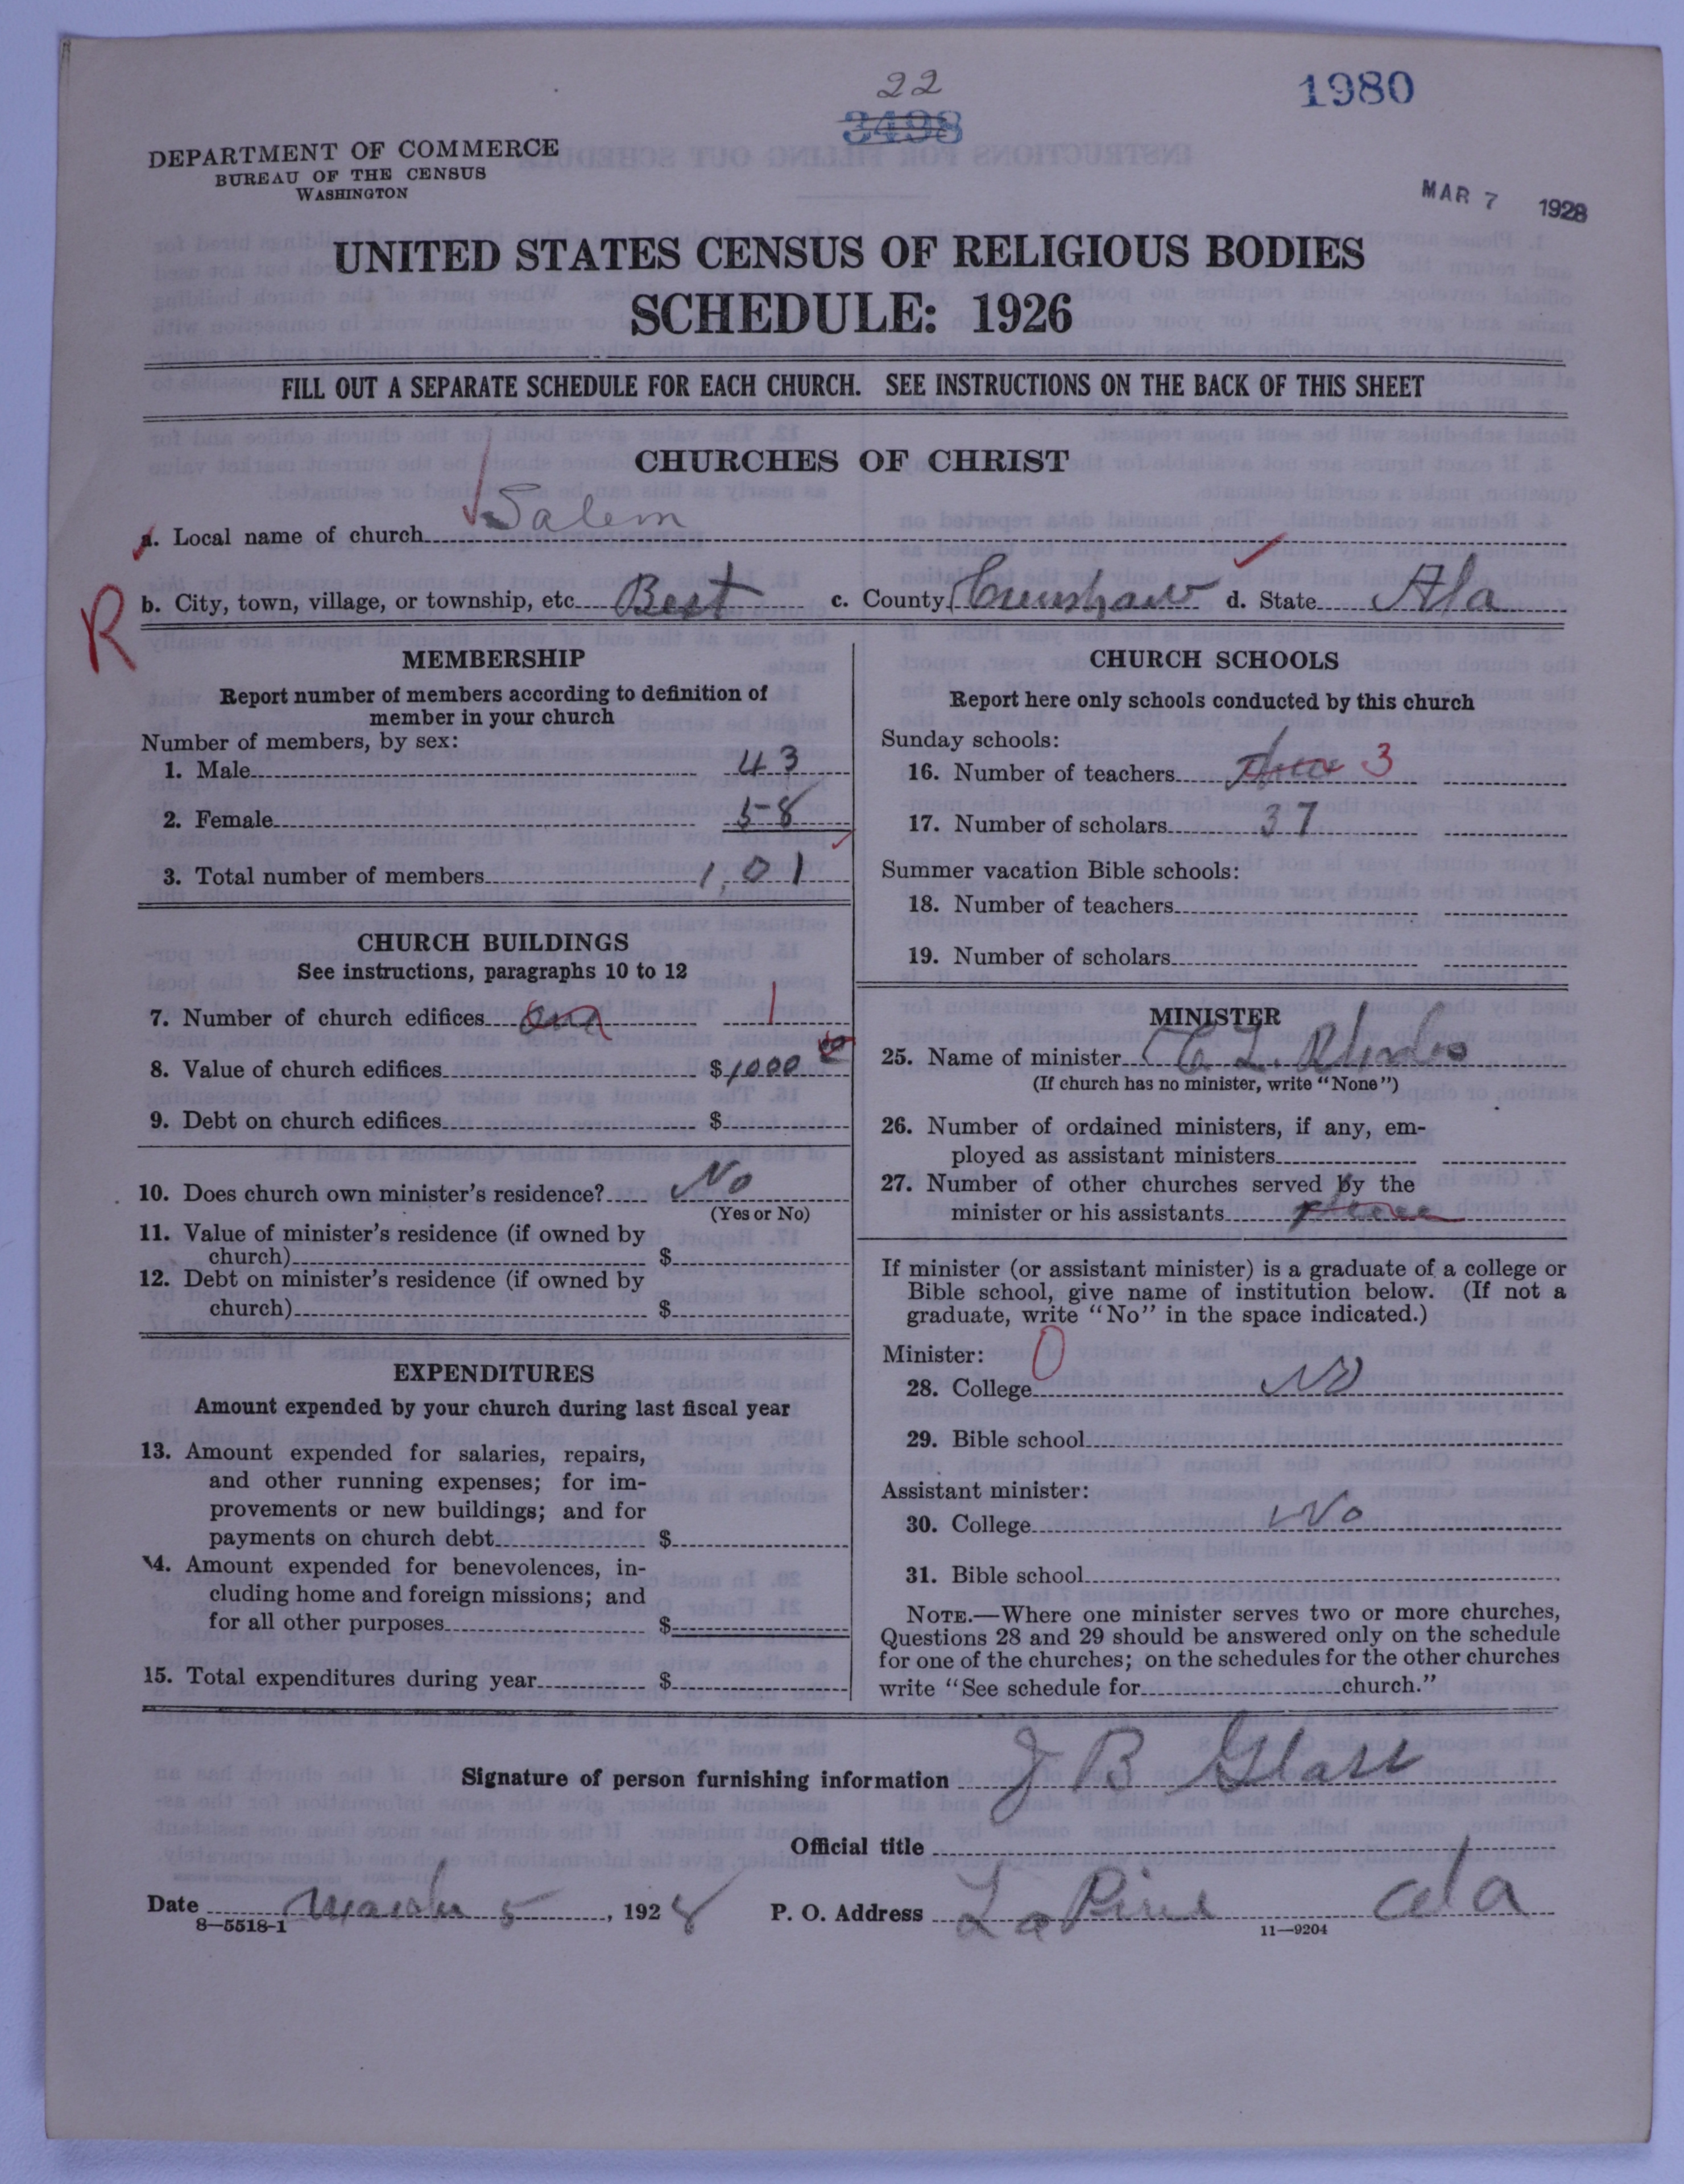 22
3498
1980
DEPARTMENT OF COMMERCE
BUREAU OF THE CENSUS
WASHINGTON
MAR 7 1928
UNITED STATES CENSUS OF RELIGIOUS BODIES
SCHEDULE: 1926
FILL OUT A SEPARATE SCHEDULE FOR EACH CHURCH. SEE INSTRUCTIONS ON THE BACK OF THIS SHEET
CHURCHES OF CHRIST
a. Local name of church Salem
R
b. City, town, village, or township, etc. Best c. County Crenshaw d. State Ala
MEMBERSHIP
Report number of members according to definition of
member in your church
Number of members, by sex:
1. Male 43
2. Female 58
3. Total number of members 101
CHURCH BUILDINGS
See instructions, paragraphs 10 to 12
7. Number of church edifices one 1
8. Value of church edifices $ 1000 00
9. Debt on church edifices $
10. Does church own minister's residence? No
(Yes or No)
11. Value of minister's residence (if owned by
church) $
12. Debt on minister's residence (if owned by
church) $
EXPENDITURES
Amount expended by your church during last fiscal year
13. Amount expended for salaries, repairs,
and other running expenses; for im-
provements or new buildings; and for
payments on church debt $
14. Amount expended for benevolences, in-
cluding home and foreign missions; and
for all other purposes $
15. Total expenditures during year $
CHURCH SCHOOLS
Report here only schools conducted by this church
Sunday schools:
16. Number of teachers three 3
17. Number of scholars 37
Summer vacation Bible schools:
18. Number of teachers
19. Number of scholars
MINISTER
25. Name of minister C L Rhodes
(If church has no minister, write "None")
26. Number of ordained ministers, if any, em-
ployed as assistant ministers
27. Number of other churches served by the
minister or his assistants
If minister (or assistant minister) is a graduate of a college or
Bible school, give name of institution below. (If not a
graduate, write "No" in the space indicated.)
Minister: 0
28. College No
29. Bible school
Assistant minister:
30. College No
31. Bible school
NOTE.—Where one minister serves two or more churches,
Questions 28 and 29 should be answered only on the schedule
for one of the churches; on the schedules for the other churches
write "See schedule for church."
Signature of person furnishing information J B
Official title
Date March 5, 1928 P. O. Address La Pine Ala
8—5518-1
11—9204